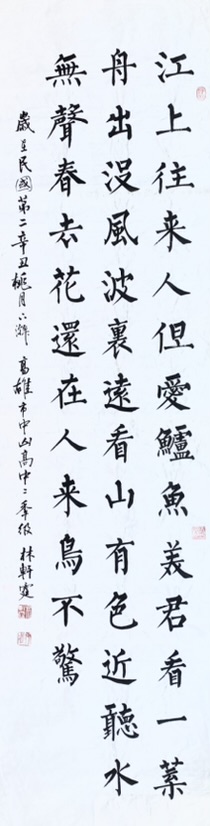 江上往来人但愛鱸魚美君看一葉
舟出没風波裏遠看山有色近聽水
無聲春去花還在人来鳥不驚
歲在民國第二辛丑桃月下澣 高雄市中山高中二年級 林軒